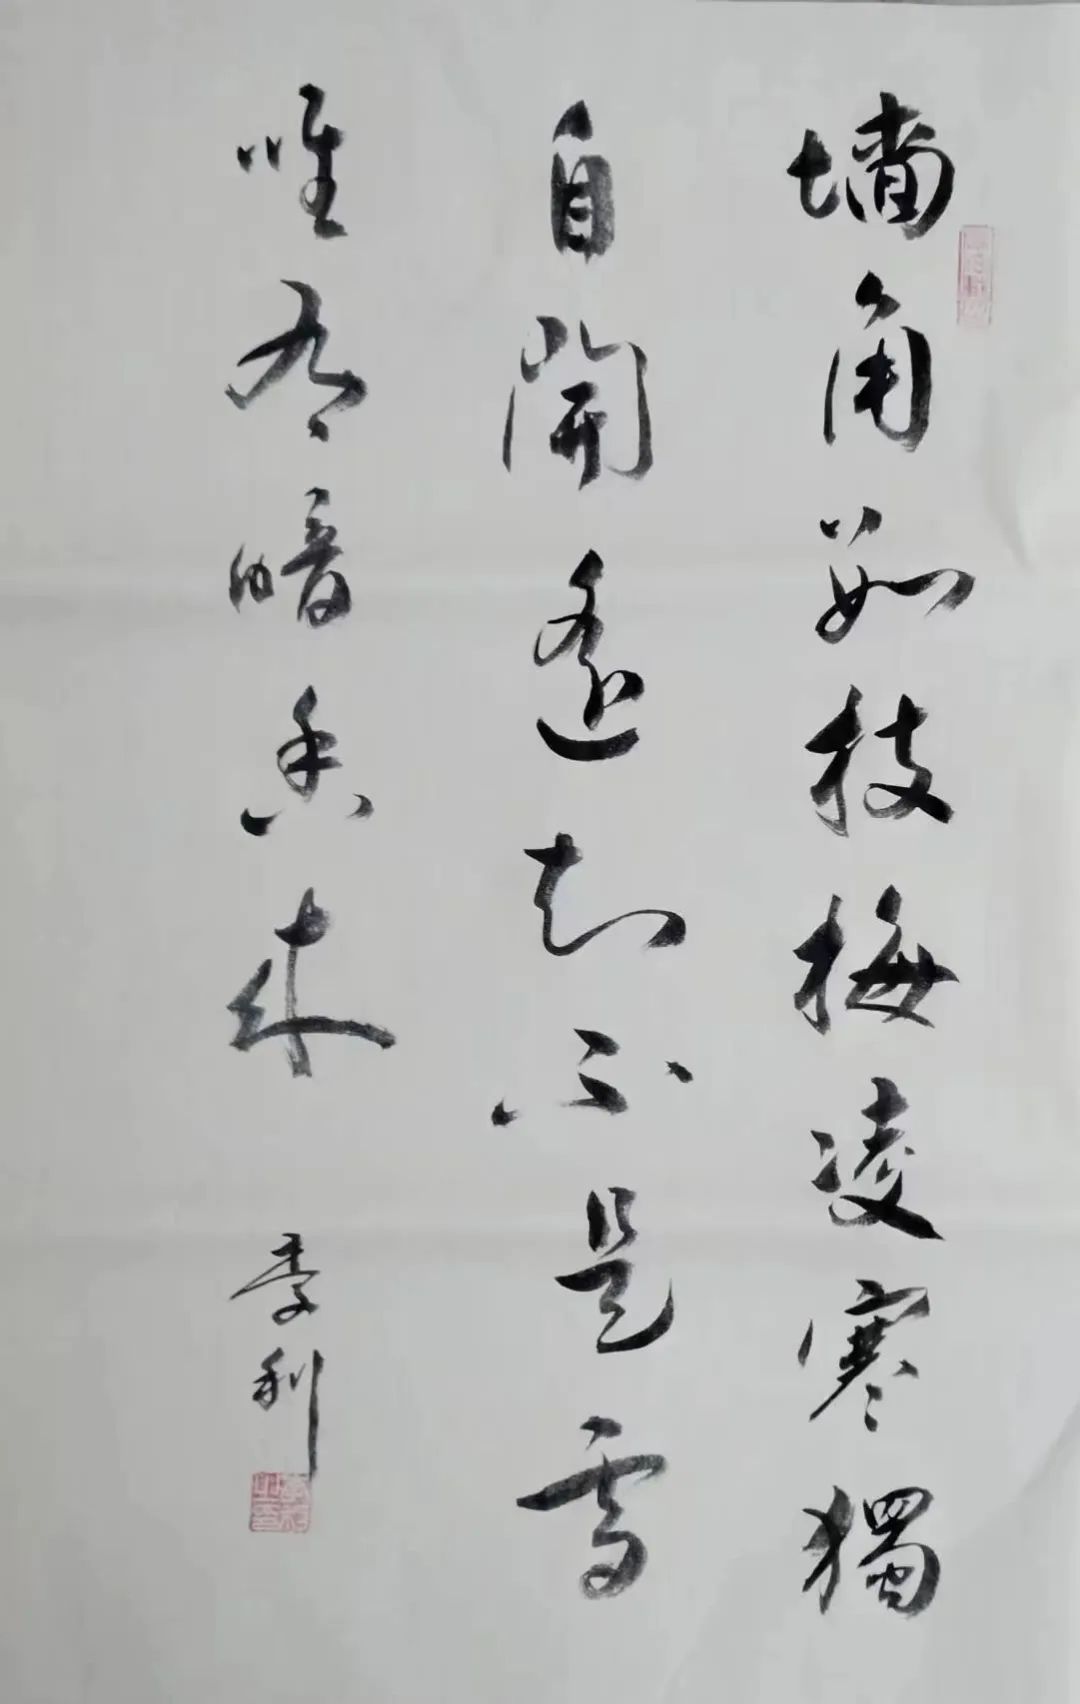 墙角數枝梅凌寒獨
自開遥知不是雪
唯有暗香来
李利